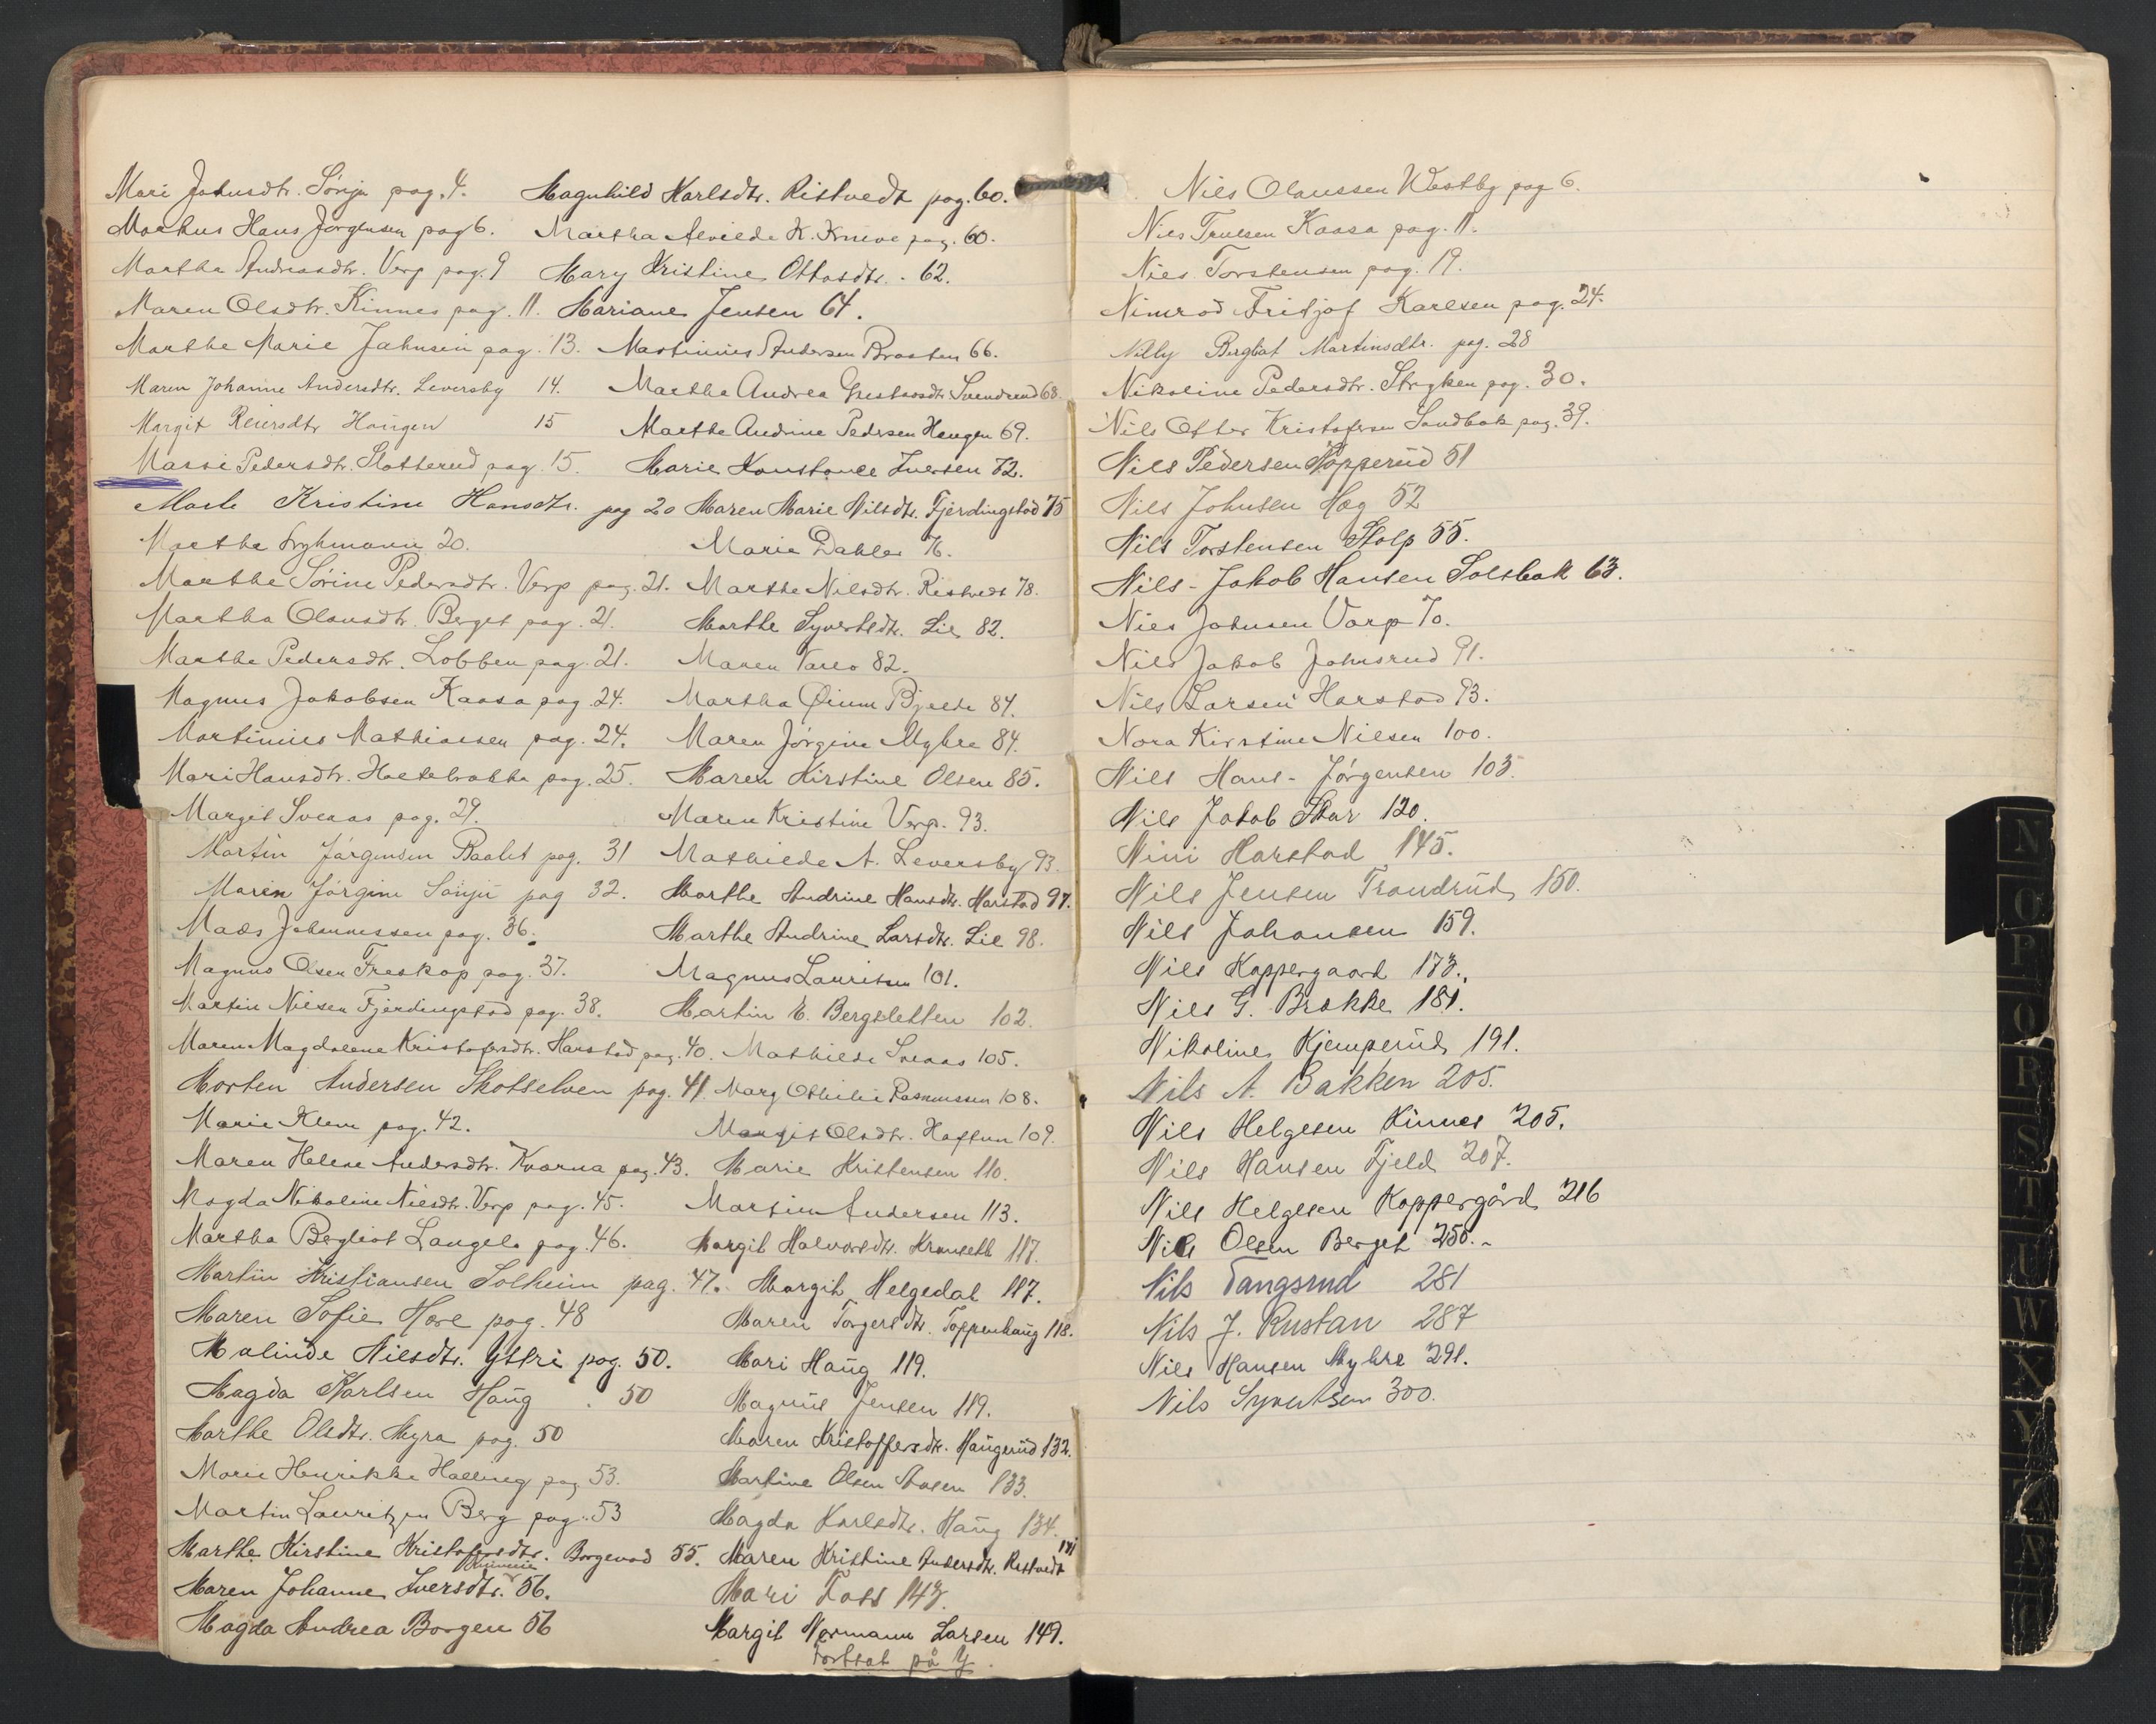 Mari Johnsdtr. Sönju pag. 4.
Markus Hans Jørgensen pag 6.
Martha Andreasdtr. Verp pag. 9
Maren Olsdtr. Kinnes pag. 11.
Marthe Marie Jahnsen pag. 13.
Maren Johanne Andersdtr. Leversby 14.
Margit Reiersdtr Haugen 15
Massi Pedersdtr. Slotterud pag. 15.
Marte Kristine Hansdtr. pag 20
Marthe 20.
Marthe Sörine Pedersdtr. Verp pag. 21.
Martha Olausdtr. Berget pag. 21.
Marthe Pedersdtr. Lobben pag. 21.
Magnus Jakobsen Kaasa pag. 24.
Martinius Mathiassen pag. 24.
Mari Hansdtr. pag. 25.
Margit Sveaas pag. 29.
Martin Jörgensen Raalet pag. 31
Maren Jörgine Sönju pag 32.
Mads Johannessen pag. 36.
Magnus Olsen Freskop pag. 37.
Martin Nilsen Fjerdingstad pag. 38.
Maren Magdalene Kristofersdtr. Harstad pag. 40.
Morten Andersen Skotselven pag. 41.
Marie Klem pag. 42.
Maren Helene Andersdtr. Kvarna pag. 43.
Magda Nikoline Nilsdtr. Verp pag. 45.
Martha Bergliot Langelo pag. 46.
Martin Kristiansen Solheim pag. 47.
Maren Sofie Hove pag. 48
Malinde Nilsdtr. Ystri pag. 50.
Magda Karlsen Haug . 50
Marthe Olsdtr. Myra pag. 50
Marie Henrikke Halling pag 53.
Martin Lauritzen Berg pag. 53
Marthe Kirstine Kristofersdtr. Borgevad 55.
Maren Johanne Iversdtr. 56.
Magda Andrea Borgen 56
Magnhild Karlsdtr. Ristvedt pag. 60.
Martha Alvilde K. Knive pag. 60.
Mary Kristine Ottosdtr. - 62.
Mariane Jensen 64.
Martinius Andersen Braaten 66.
Marthe Andrea Gustavsdtr. Svendsrud 68.
Marthe Andrine Pedersen Haugen 69.
Marie Konstance Iversen 72.
Maren Marie Nilsdtr. Fjerdingstad 75
Marie Dahler 76.
Marthe Nilsdtr. Ristvedt 78.
Marthe Syvertsdtr. Lie 82.
Maren Varlo 82.
Martha Øium Bjelde 84.
Maren Jörgine Myhre 84.
Maren Kirstine Olsen 85.
Maren Kristine Verp. 93.
Mathilde A. Leversby 93.
Marthe Andrine Hansdtr. Harstad 97.
Marthe Andrine Larsdtr. Lie 98.
Magnus Lauritsen 101.
Martin E. Bergsletten 102.
Mathilde Sveaas 105.
Mary Othilie Rasmussen 108.
Margit Olsdtr. Haftun 109.
Marie Kristensen 110.
Martin Andersen 113.
Margit Halvorsdtr. Kronseth 117.
Margit Helgedal 117.
Maren Torgersdtr. Toppenhaug 118.
Mari Haug 119.
Magnus Jensen 119.
Maren Kristoffersdtr. Haugerud 132.
Martine Olsen Aasen 133.
Magda Karlsdtr. Haug 134.
Maren Kristine Andersdtr. Ristvedt 141
Mari Foss 143.
Margit Normann Larsen 149.
Fortsat på Y.
Nils Olaussen Westby pag 6.
Nils Truesen Kaasa pag. 11.
Nils Torstensen pag. 19.
Nimrod Fritjof Karlsen pag. 24.
Nelly Bergliot Martinsdtr. pag. 28
Nikoline Pedersdtr. Stryken pag. 30.
Nils Otter Kristofersen Sandbak pag. 39.
Nils Pedersen Hopperud 51
Nils Johnsen Hag 52
Nils Torstensen Stolp 55.
Nils-Jakob Hansen Solsbak 63.
Nils Johnsen Varp 70.
Nils Jakob Johnsrud 91.
Nils Larsen Harstad 93.
Nora Kirstine Nilsen 100.
Nils Hans-Jörgensen 103.
Nils Jakob Skar 120.
Nini Harstad 145.
Nils Jensen Trandrud 150.
Nils Johansen 159.
Nils Koppergaard 173.
Nils G. Brokke 181.
Nikoline Kjemperud 191.
Nils A. Bakken 205.
Nils Helgesen Kinnes 205.
Nils Hansen Fjeld 207.
Nils Helgesen Koppergård 216
Nils Olsen Berget 250.-
Nils Tangsrud 281
Nils J. Rustan 287
Nils Hansen Myhre 291.
Nils Syvertsen 300.
N
O
P
Q
R
S
T
U
W
X
Y
Z
Æ
Ø